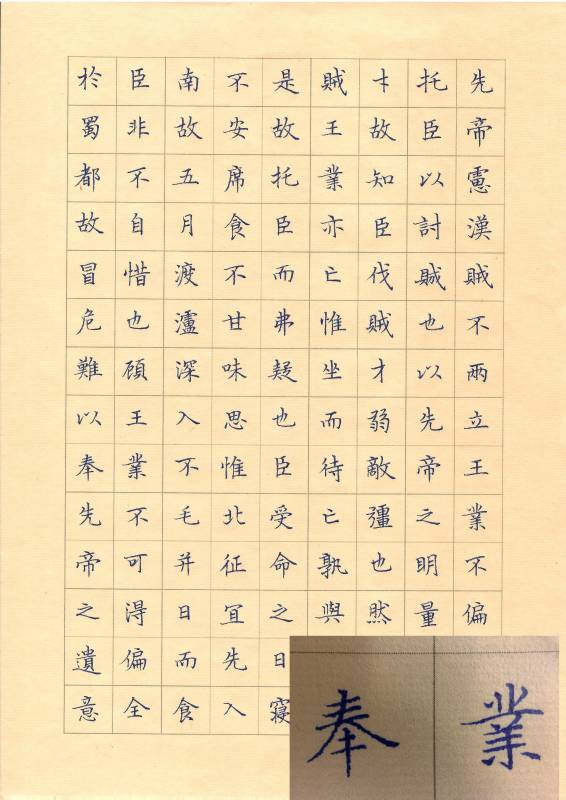 先帝慮漢賊不兩立王業不偏
托臣以討賊也以先帝之明量
才故知臣伐賊才弱敵彊也然
賊王業亦亡惟坐而待亡孰與
是故托臣而弗疑也臣受命之日寢
不安席食不甘味思惟北征宜先入
南故五月渡瀘深入不毛并日而食
臣非不自惜也顧王業不可得偏全
於蜀都故冒危難以奉先帝之遺意
奉 業